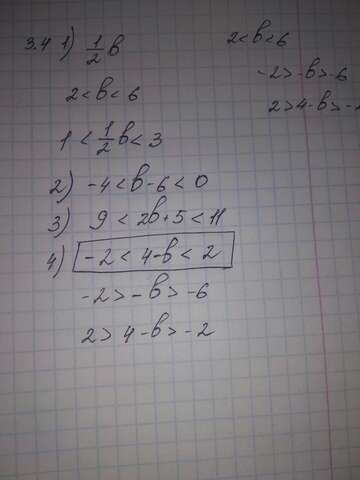 3.4 1) 1/2 в
2 < в < 6
1 < 1/2 в < 3
2) -4 < в - 6 < 0
3) 9 < 2в + 5 < 11
4) -2 < 4 - в < 2
-2 > -в > -6
2 > 4 - в > -2
2 < в < 6
-2 > -в > -6
2 > 4 - в > -